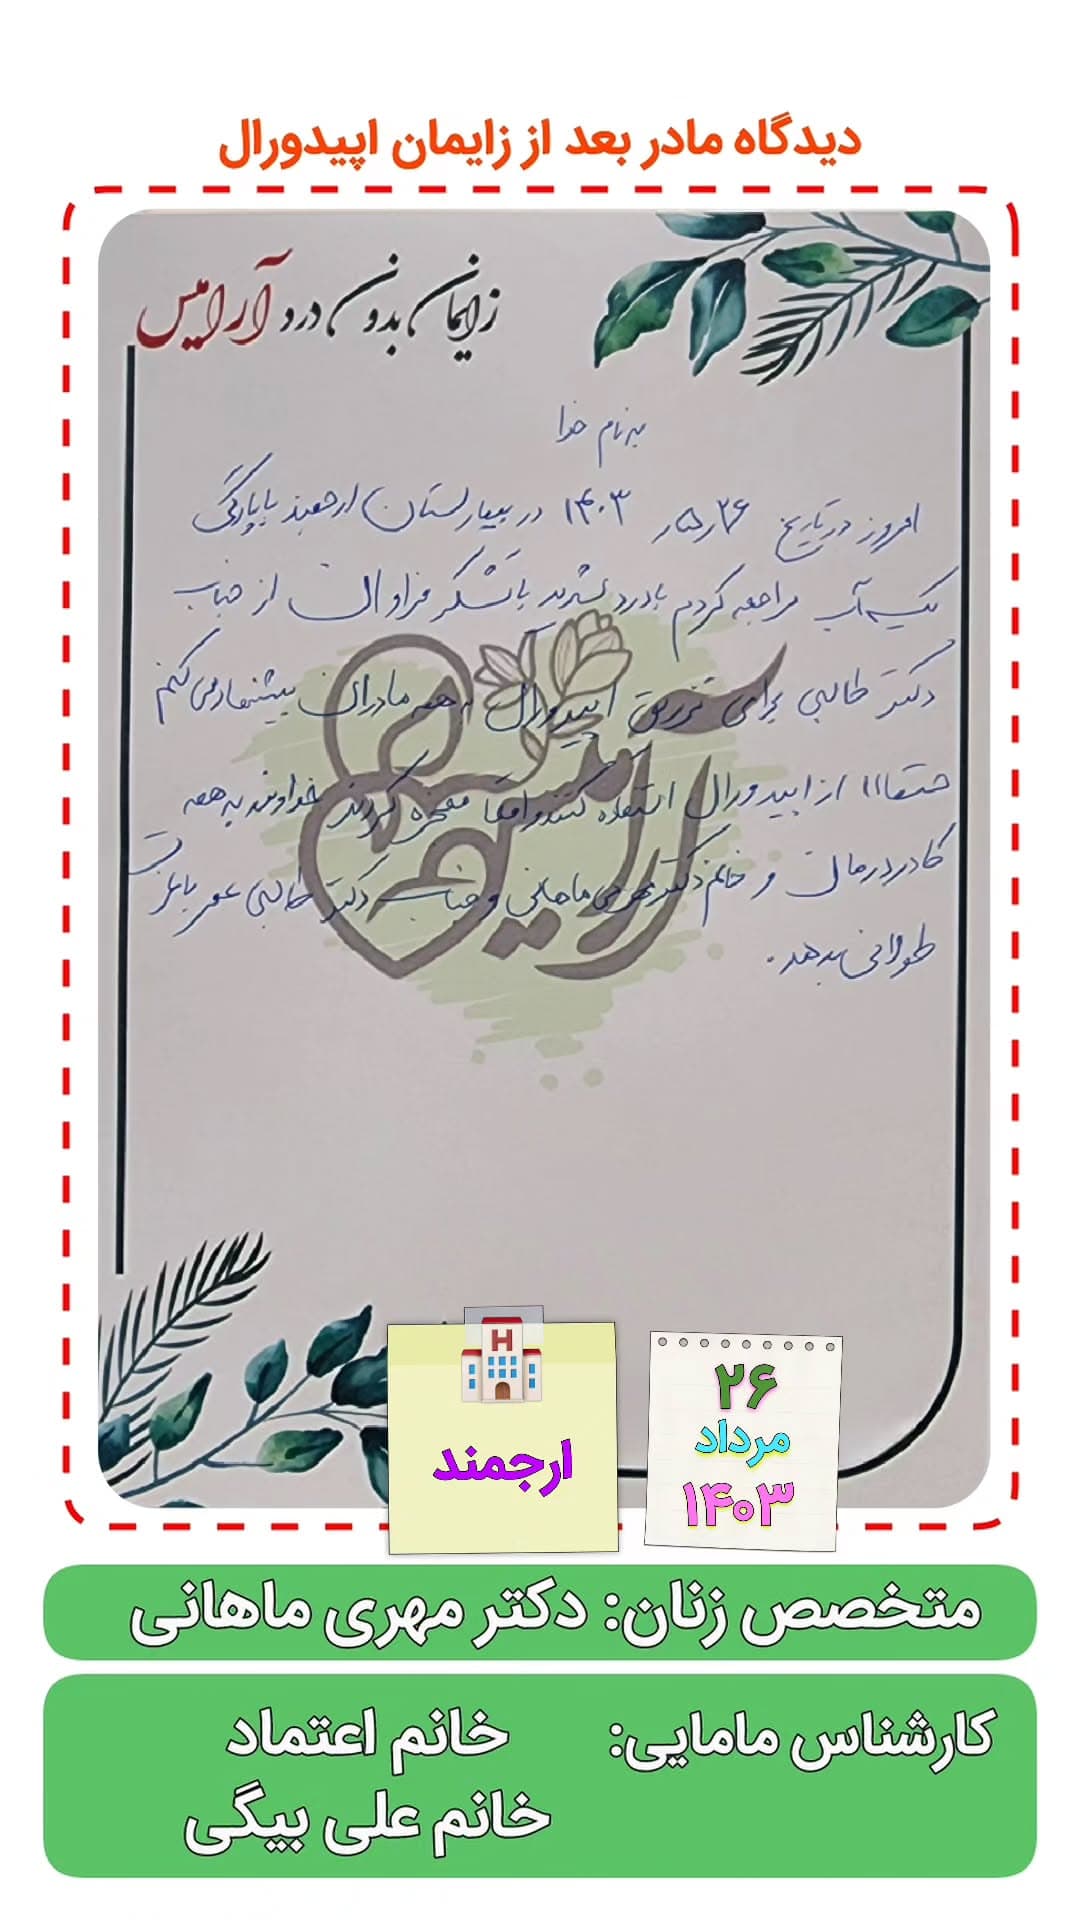 دیدگاه مادر بعد از زایمان اپیدورال
زایمان بدون درد آرامیس
به نام خدا
امروز در تاریخ ۲۶ ر ۵ ر ۱۴۰۳ در بیمارستان ارجمند با پارگی
کیسه آب مراجعه کردم با درد شدید با تشکر فراوان از جناب
دکتر طالبی برای تزریق اپیدورال به همه مادران پیشنهاد می کنم
حتما از اپیدورال استفاده کنند واقعا معجزه کردند خداوند به همه
کادر درمان و خانم دکتر مهری ماهانی و جناب دکتر طالبی عمر با عزت
طولانی بدهد.
آرامیس
ارجمند
۲۶
مرداد
۱۴۰۳
متخصص زنان: دکتر مهری ماهانی
کارشناس مامایی: خانم اعتماد
خانم علی بیگی